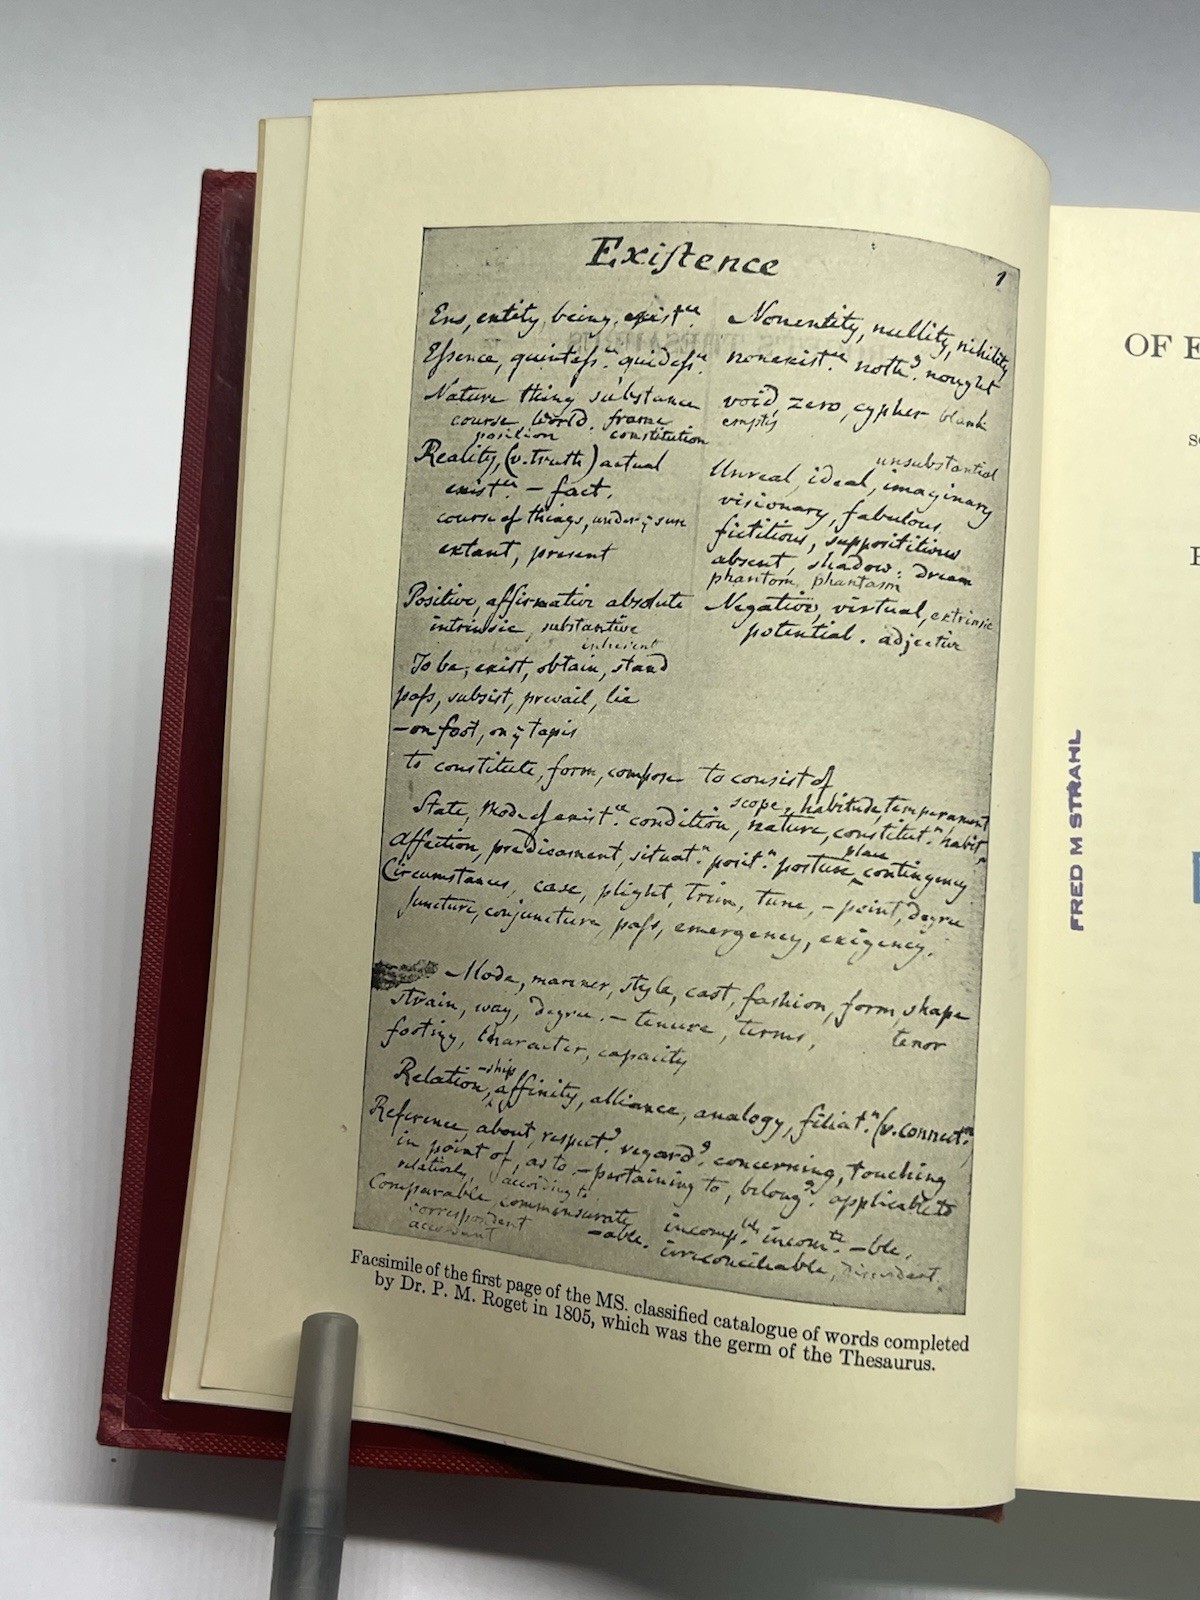 Existence
1
Ens, entity, being, exist.ce
Essence, quintess.ce quidess.ce
Nature thing substance
course world. frame
position constitution
Reality, (v. truth) actual
exist.ce – fact.
course of things, under ye sun
extant, present
Positive, affirmative absolute
intrinsic, substantive
inherent
To be, exist, obtain, stand
pass, subsist, prevail, lie
– on foot, on ye tapis
to constitute, form, compose to consist of
Nonentity, nullity, nihility
nonexist.ce noth.g nought
void, zero, cypher blank
empty
unsubstantial
Unreal, ideal, imaginary
visionary, fabulous
fictitious, supposititious
absent, shadow. dream
phantom, phantasm
Negative, virtual, extrinsic
potential. adjective
scope, habitude, temperament
State, Mode of exist.ce condition, nature, constitut.n habit
place
Affection, predicament, situat.n posit.n posture contingency
Circumstances, case, plight, trim, tune, – point, degree
Juncture, conjuncture, pass, emergency, exigency.
Mode, manner, style, cast, fashion, form, shape
strain, way, degree. – tenure, terms, tenor
footing, character, capacity
-ship
Relation, affinity, alliance, analogy, filiat.n (v. connect.n)
Reference, about, respect.g regard.g concerning, touching
in point of, as to – pertaining to, belong.g applicable to
relatively, according to
Comparable commensurate incomp.ble incom.te –ble,
correspondent –able. irreconcileable, discordant.
accordant
Facsimile of the first page of the MS. classified catalogue of words completed
by Dr. P. M. Roget in 1805, which was the germ of the Thesaurus.
OF
FRED M STRAHL